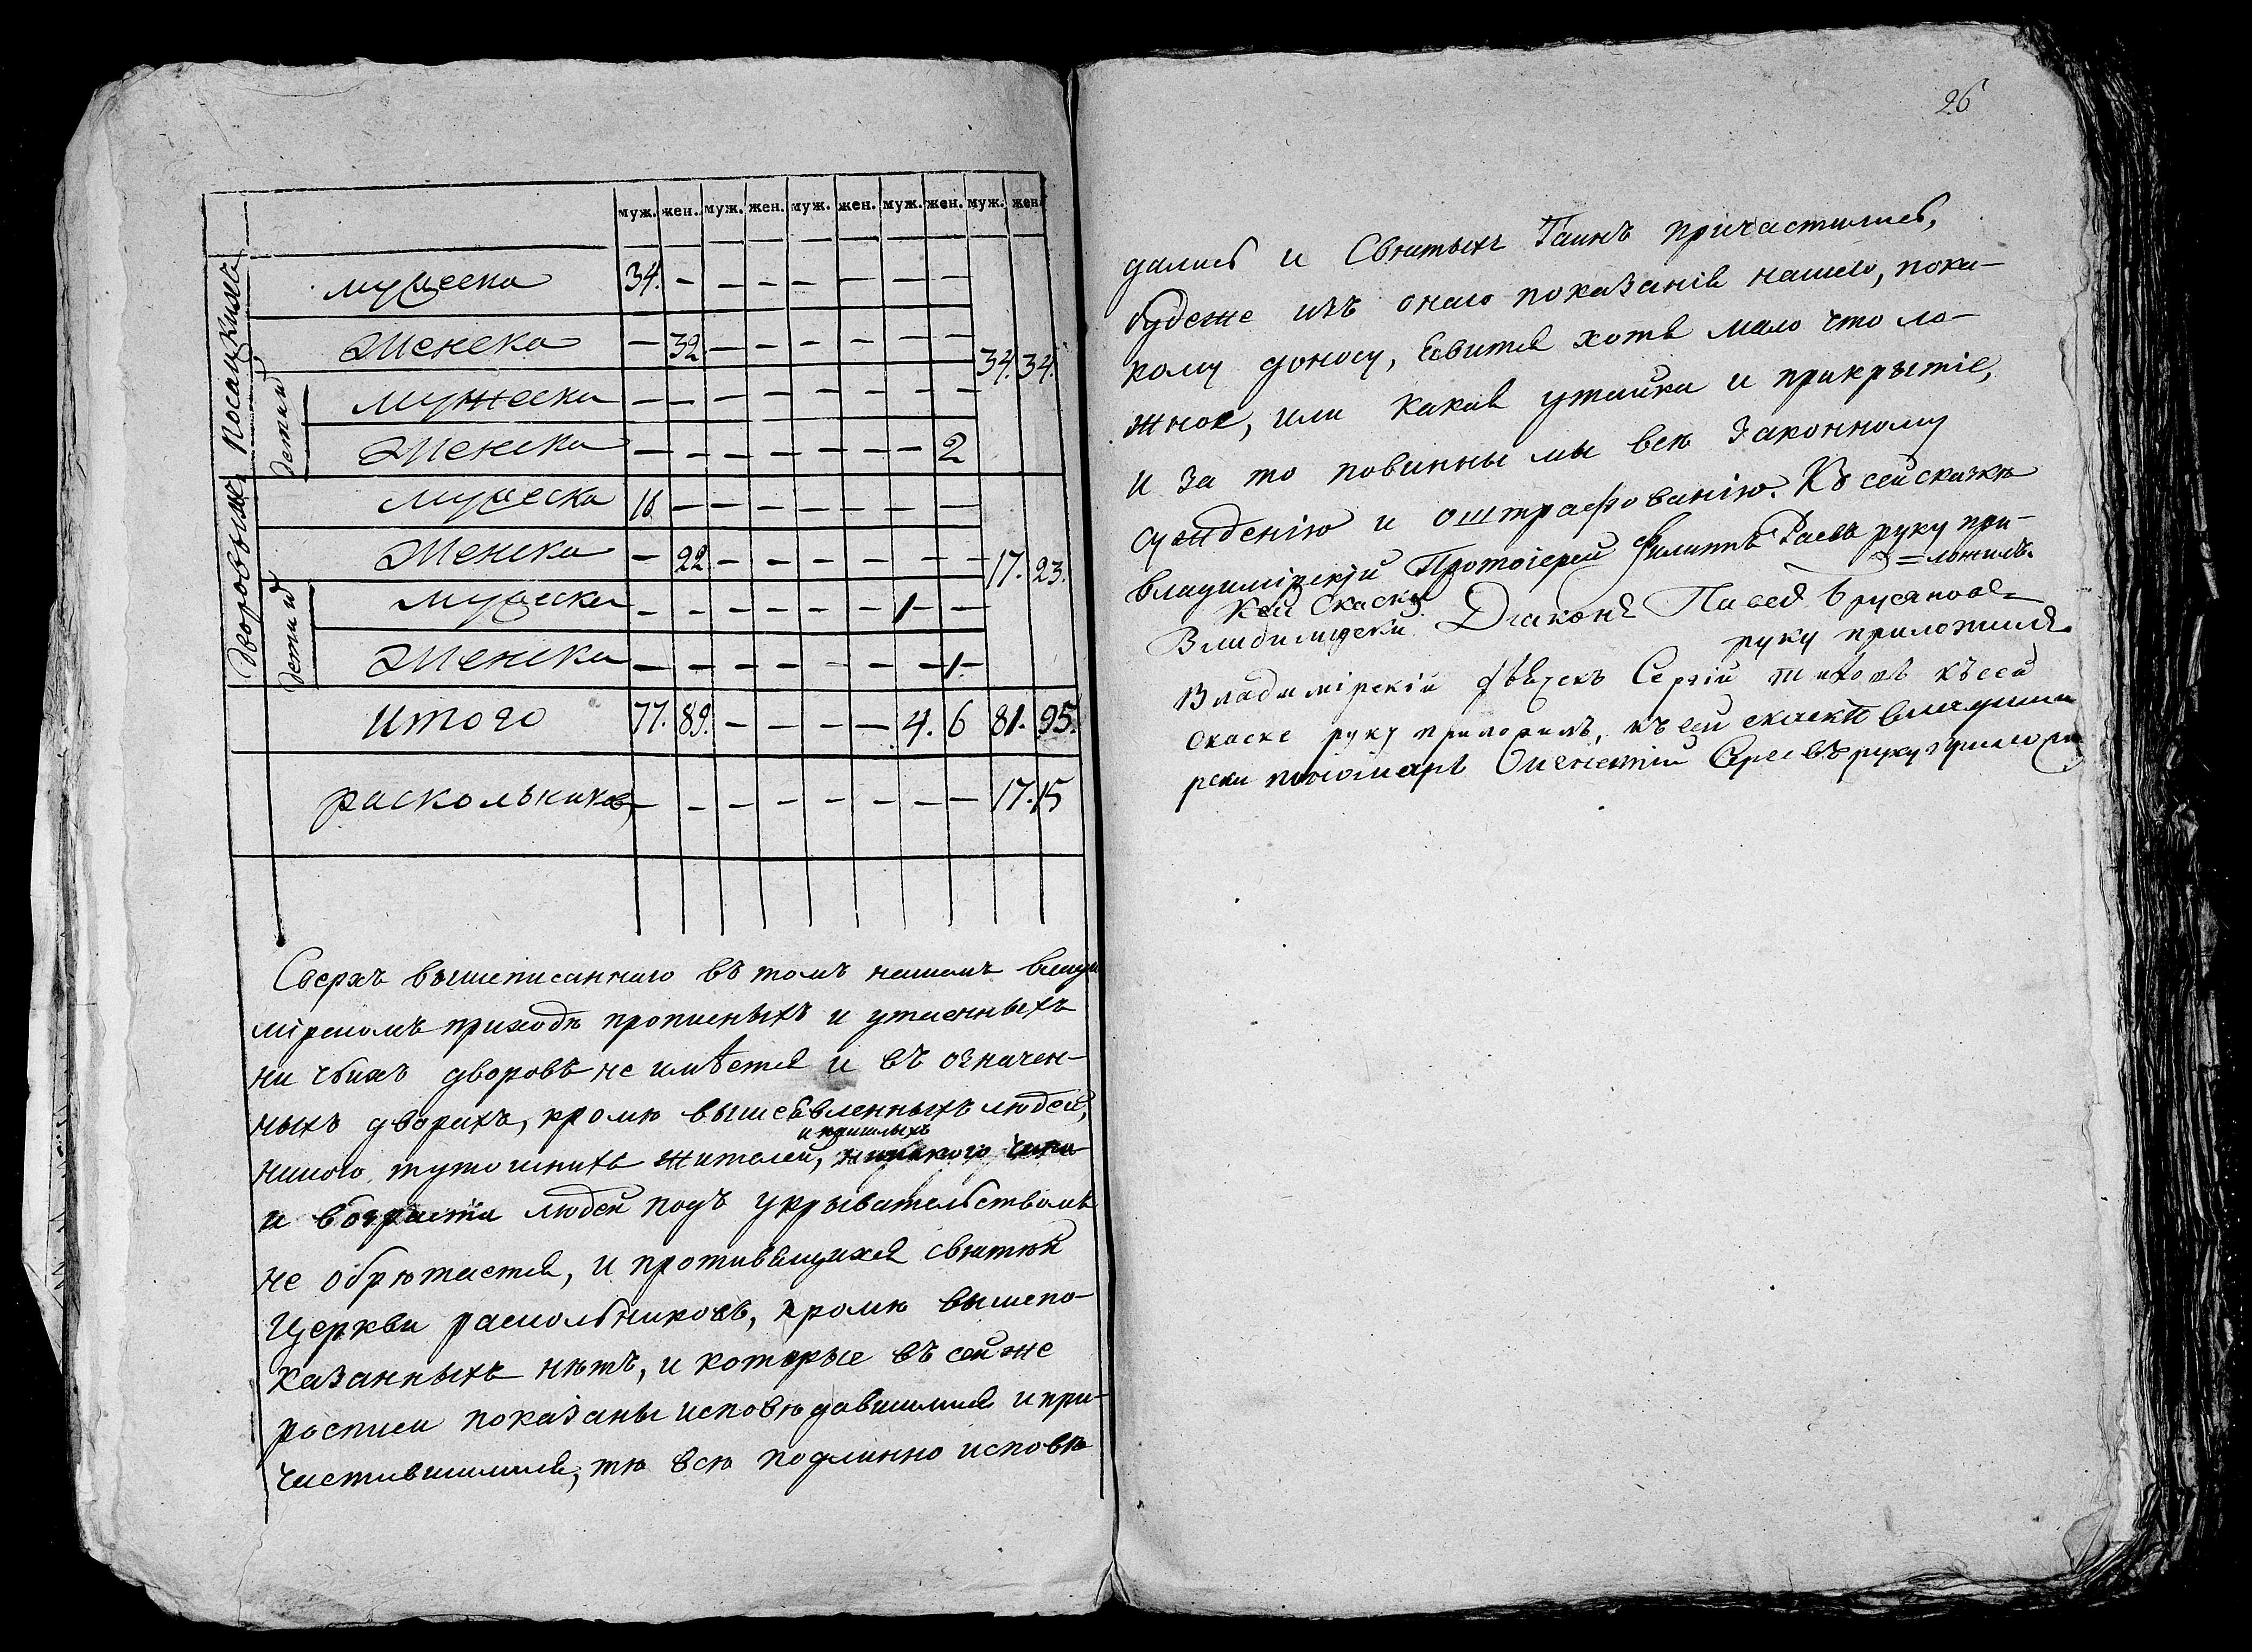 муж. жен. муж. жен. муж. жен. муж. жен. муж. жен.
Посацкихъ
мужеска 34. — — — — — — —
Женска — 32. — — — — — — 34. 34.
детии
мужеска — — — — — — — —
Женска — — — — — — — 2
Дворовыхъ
мужеска 16 — — — — — — —
Женска — 22. — — — — — — 17. 23.
детии
мужеска — — — — — — 1 —
Женска — — — — — — — 1
итого 77. 89. — — — — 4. 6 81. 95.
раскольниковъ — — — — — — — — 17. 15
Сверхъ вышеписаннаго въ томъ нашемъ влади
мірскомъ приходѣ прописныхъ и утаенныхъ
ни чьихъ дворовъ не имѣется и въ означен-
ныхъ дворахъ, кромѣ вышеявленныхъ людей,
никого тутошнихъ жителей, и пришлыхъ никакого чина
и возраста людей подъ укрывательствомъ
не обрѣтается, и противящихся святѣй
Церкви раскольниковъ, кромѣ вышепо-
казанныхъ нѣтъ, и которые въ сей же
росписи показаны исповѣдавшимися и при-
частившимися, тѣ всѣ подлинно исповѣ
26
дались и Святыхъ Таинъ причастились,
будеже изъ онаго показанія нашего, пока-
кому доносу, явится хотя мало что ло-
жное, или какая утайка и прикрытіе,
и за то повинны мы всѣ законному
сужденію и оштрафованію. Къ сей сказкѣ
владимірскій Протоіерей Филиппъ Раевъ руку при-
=ложилъ.
Ксеи Скаскѣ
Владимирски Диаконъ Павел
руку приложилъ
Владимірскій Сергій къ сей
скаске руку приложилъ, къ сей скаскѣ владими
рски пономарь руку приложилъ